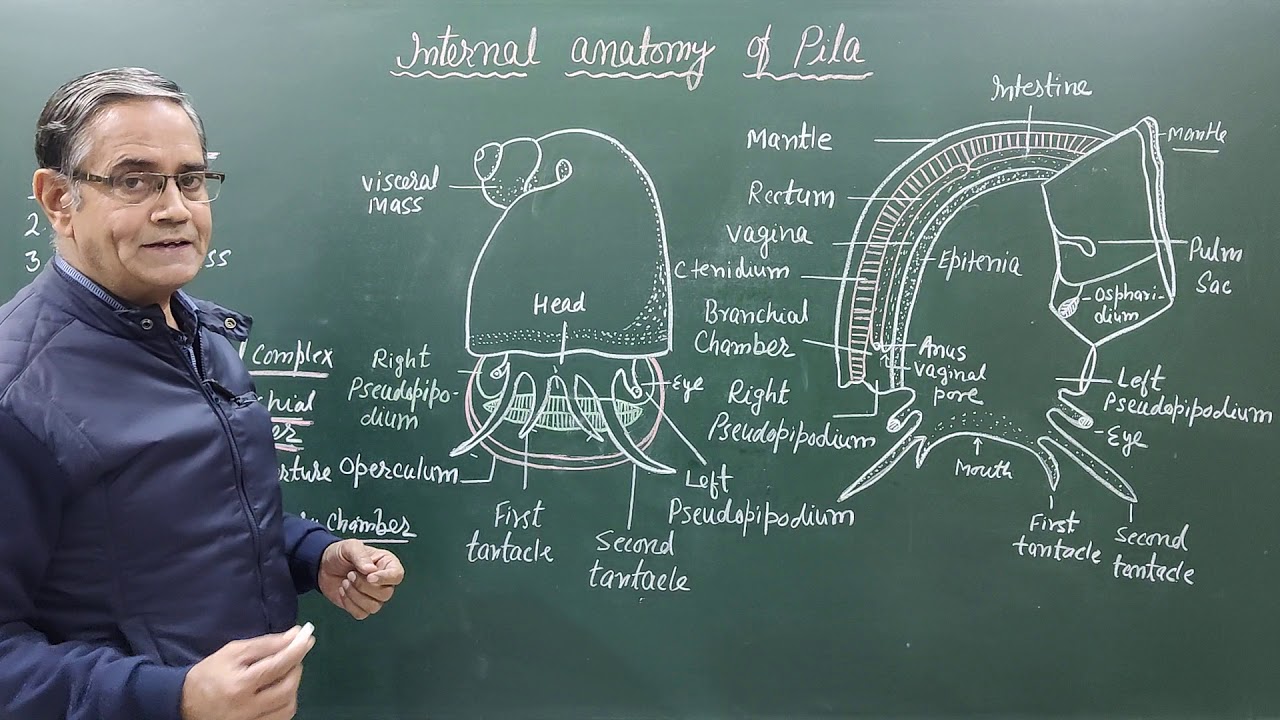 Internal anatomy of Pila
2.
3.
ss
Complex
chial
Chamber
visceral
mass
Head
Right
Pseudopipo-
dium
Eye
Operculum
First
tantacle
Second
tantacle
Left
Pseudopipodium
Intestine
Mantle
Mantle
Rectum
vagina
Ctenidium
Epitenia
Branchial
Chamber
Pulm
Sac
Osphari-
dium
Anus
vaginal
pore
Right
Pseudopipodium
Left
Pseudopipodium
Eye
Mouth
First
tantacle
Second
tantacle